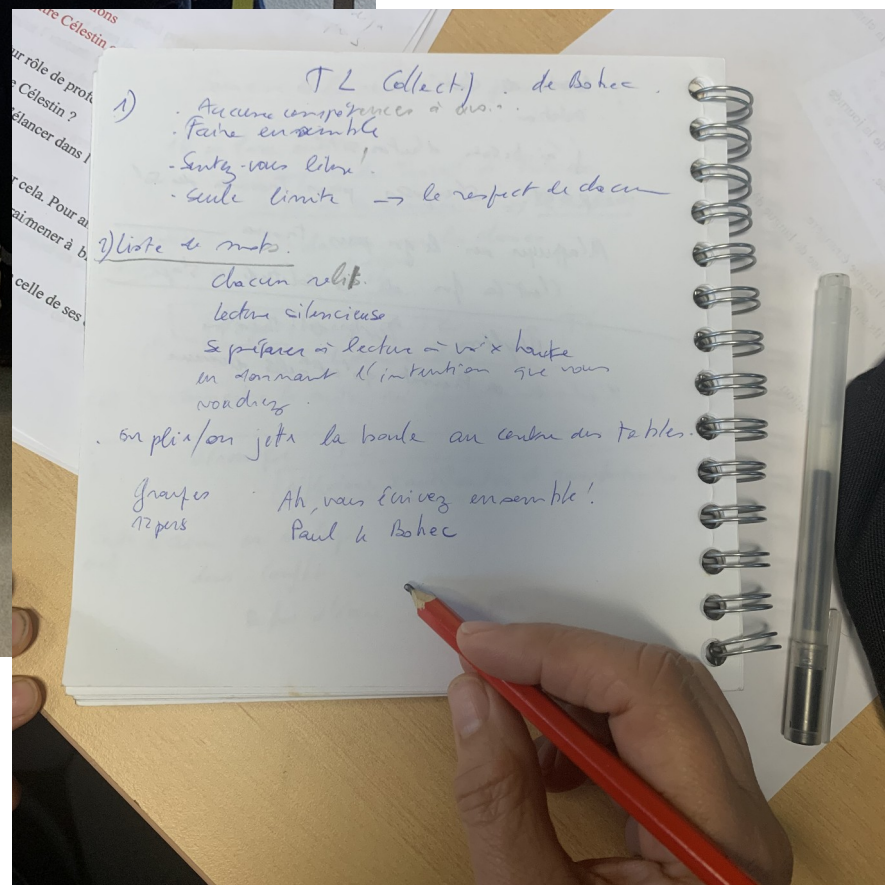 ons
re Célestin
ur rôle de prof
e Célestin ?
élancer dans l
r cela. Pour a
rai/mener à b
celle de ses
TL Collectif de Bohec.
1) . Aucune compétences à
. Faire ensemble
. Sentez-vous libre !
. seule limite → le respect de chacun
2) liste de mots.
chacun relit.
lecture silencieuse
se préparer à lecture à voix haute
en donnant l'intention que vous
voudrez.
. on plie/on jette la boule au centre des tables.
Groupes . Ah, vous écrivez ensemble !
12 pers Paul le Bohec